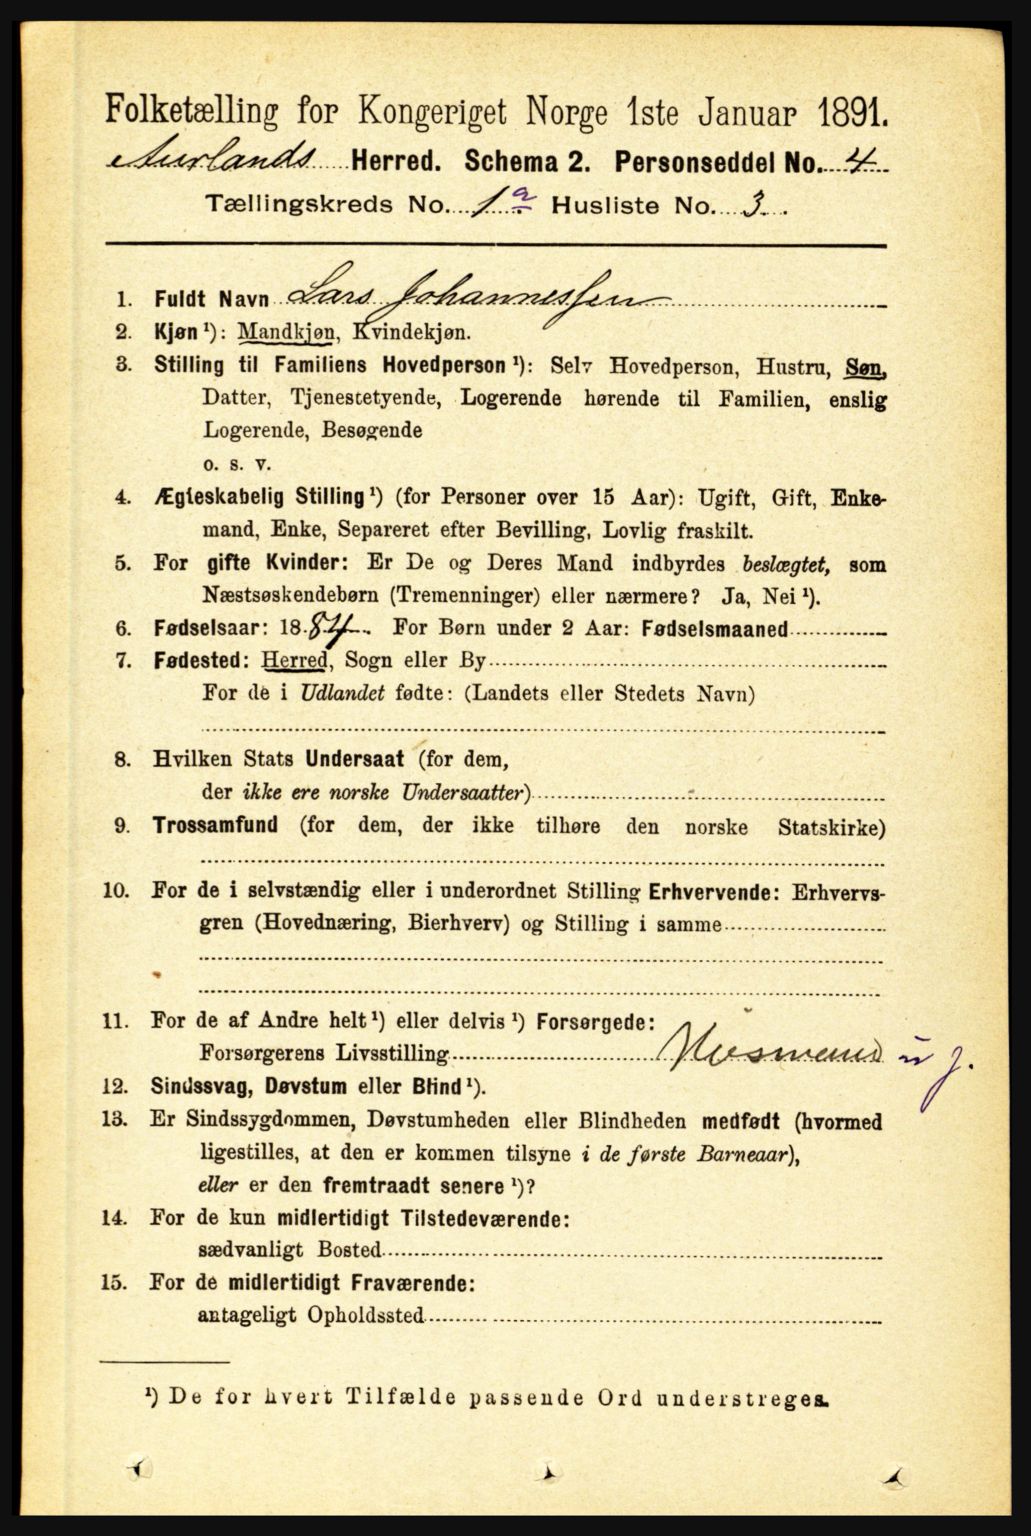 Folketælling for Kongeriget Norge 1ste Januar 1891.
Aurlands Herred. Schema 2. Personseddel No. 4
Tællingskreds No. 1a Husliste No. 3.
1. Fuldt Navn Lars Johannessen
2. Kjøn ¹): Mandkjøn, Kvindekjøn.
3. Stilling til Familiens Hovedperson ¹): Selv Hovedperson, Hustru, Søn,
Datter, Tjenestetyende, Logerende hørende til Familien, enslig
Logerende, Besøgende
o. s. v.
4. Ægteskabelig Stilling ¹) (for Personer over 15 Aar): Ugift, Gift, Enke-
mand, Enke, Separeret efter Bevilling, Lovlig fraskilt.
5. For gifte Kvinder: Er De og Deres Mand indbyrdes beslægtet, som
Næstsøskendebørn (Tremenninger) eller nærmere? Ja, Nei ¹).
6. Fødselsaar: 1884. For Børn under 2 Aar: Fødselsmaaned
7. Fødested: Herred, Sogn eller By
For de i Udlandet fødte: (Landets eller Stedets Navn)
8. Hvilken Stats Undersaat (for dem,
der ikke ere norske Undersaatter)
9. Trossamfund (for dem, der ikke tilhøre den norske Statskirke)
10. For de i selvstændig eller i underordnet Stilling Erhvervende: Erhvervs-
gren (Hovednæring, Bierhverv) og Stilling i samme
11. For de af Andre helt ¹) eller delvis ¹) Forsørgede:
Forsørgerens Livsstilling Husmand u j.
12. Sindssvag, Døvstum eller Blind ¹).
13. Er Sindssygdommen, Døvstumheden eller Blindheden medfødt (hvormed
ligestilles, at den er kommen tilsyne i de første Barneaar),
eller er den fremtraadt senere ¹)?
14. For de kun midlertidigt Tilstedeværende:
sædvanligt Bosted
15. For de midlertidigt Fraværende:
antageligt Opholdssted
¹) De for hvert Tilfælde passende Ord understreges.